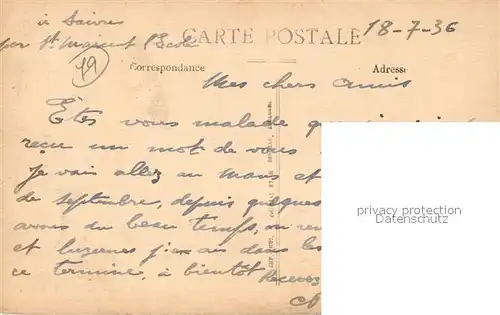 à Saivres
par St Maixent l'École
CARTE POSTALE
18-7-36
79
Correspondance
Adresse
Mes chers amis
Êtes vous malade
reçu un mot de vous
je vais allez au Mans et
de septembre, depuis quelques
avons du beau temps, on
et luzernes j'en ai dans les
ce termine, à bientôt
Recevez
privacy protection
www.oldthing.de